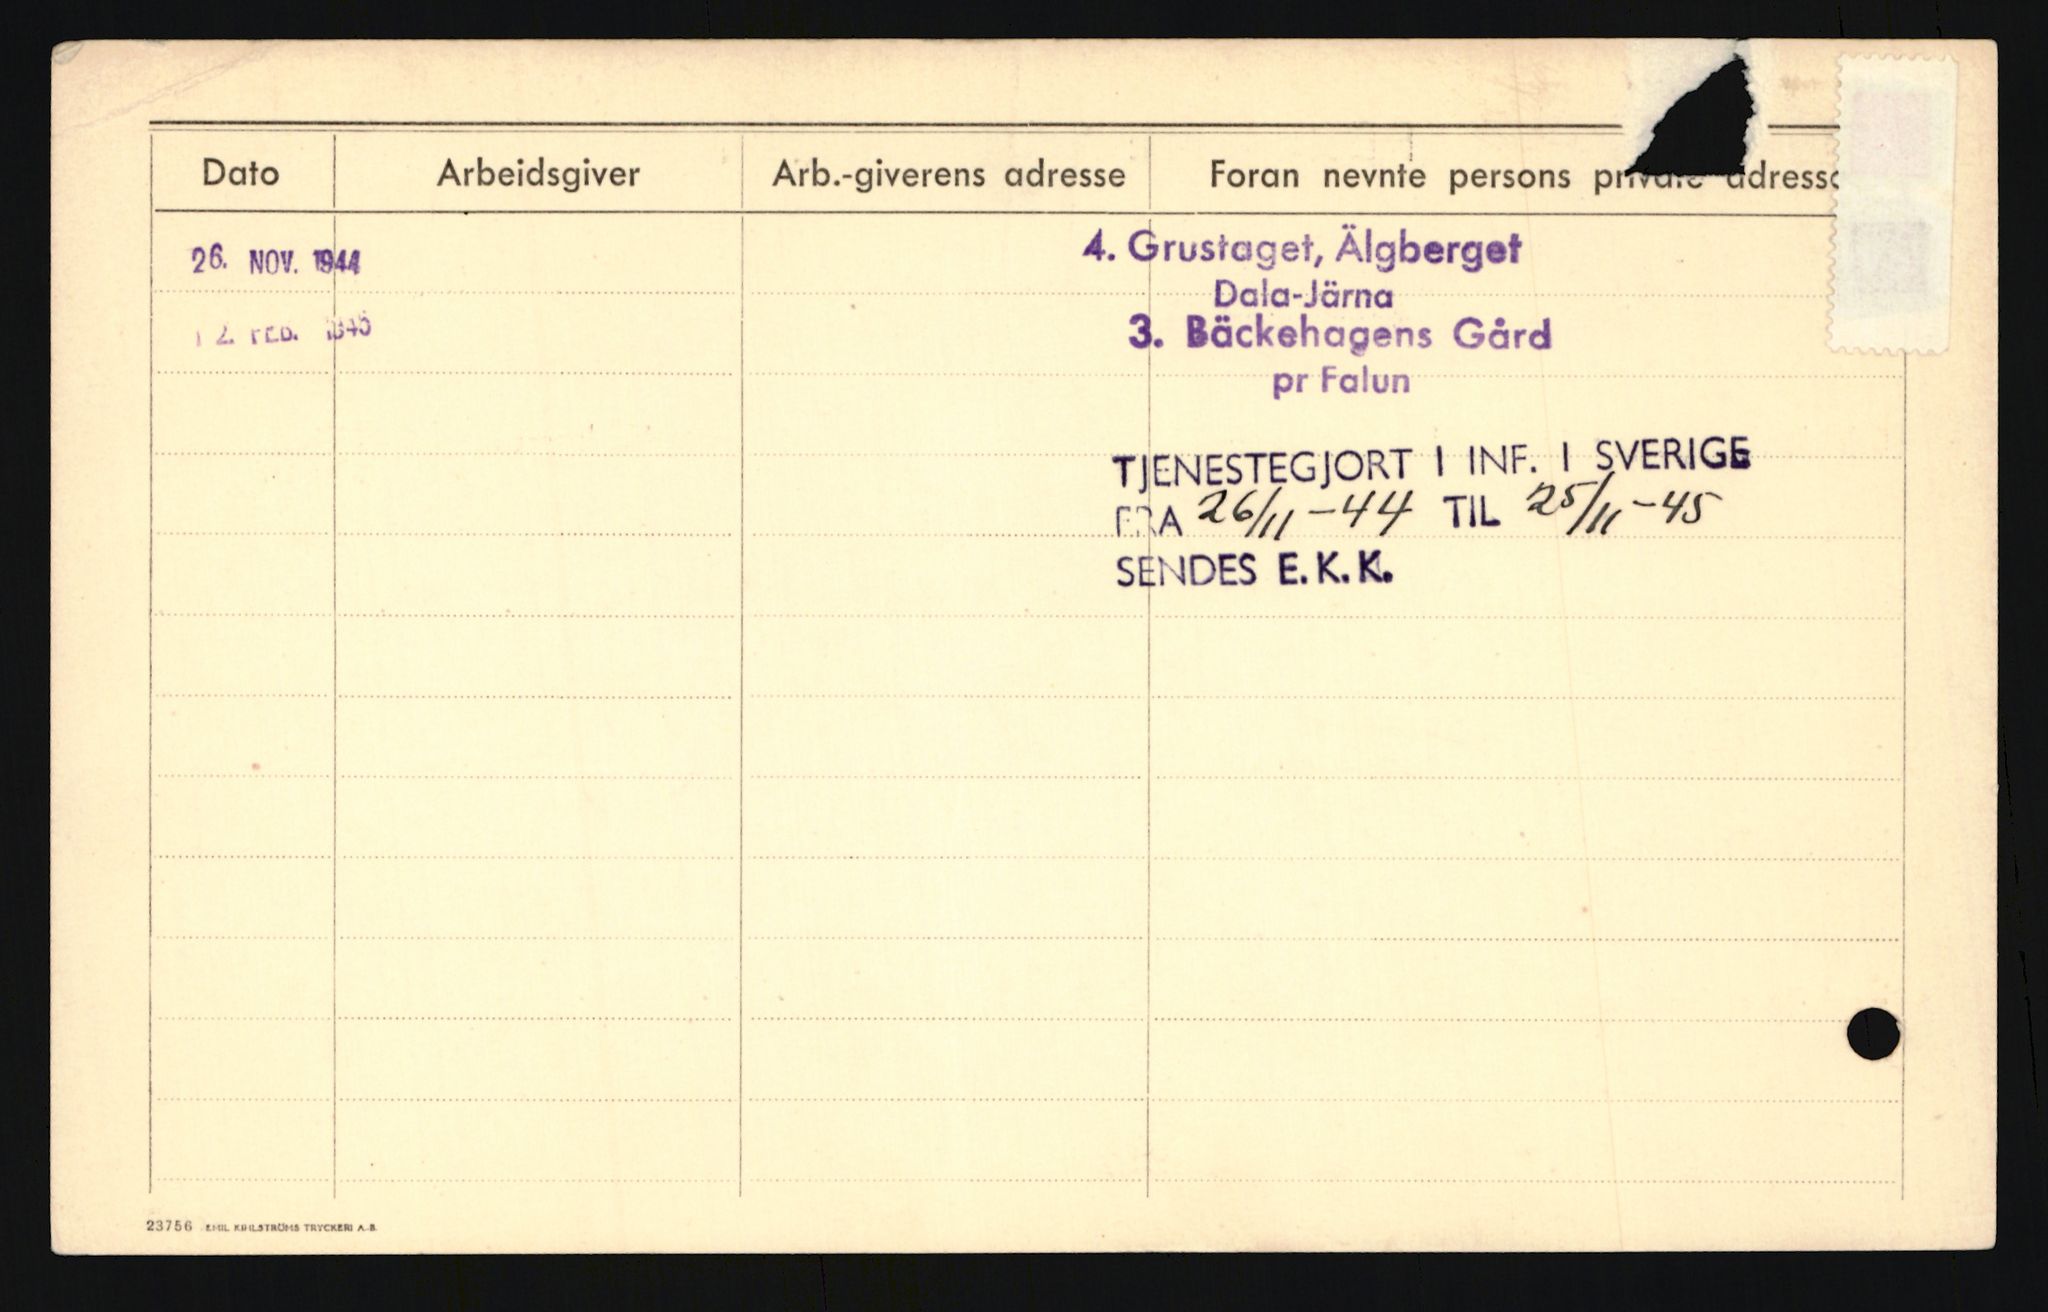 Dato Arbeidsgiver Arb.-giverens adresse Foran nevnte persons private adresse
26. NOV. 1944 4. Grustaget, Älgberget
Dala-Järna
12. FEB. 1945 3. Bäckehagens Gård
pr Falun
TJENESTEGJORT I INF. I SVERIGE
FRA 26/11-44 TIL 25/11-45
SENDES E.K.K.
23756 EMIL KIHLSTRÖMS TRYCKERI A.-B.